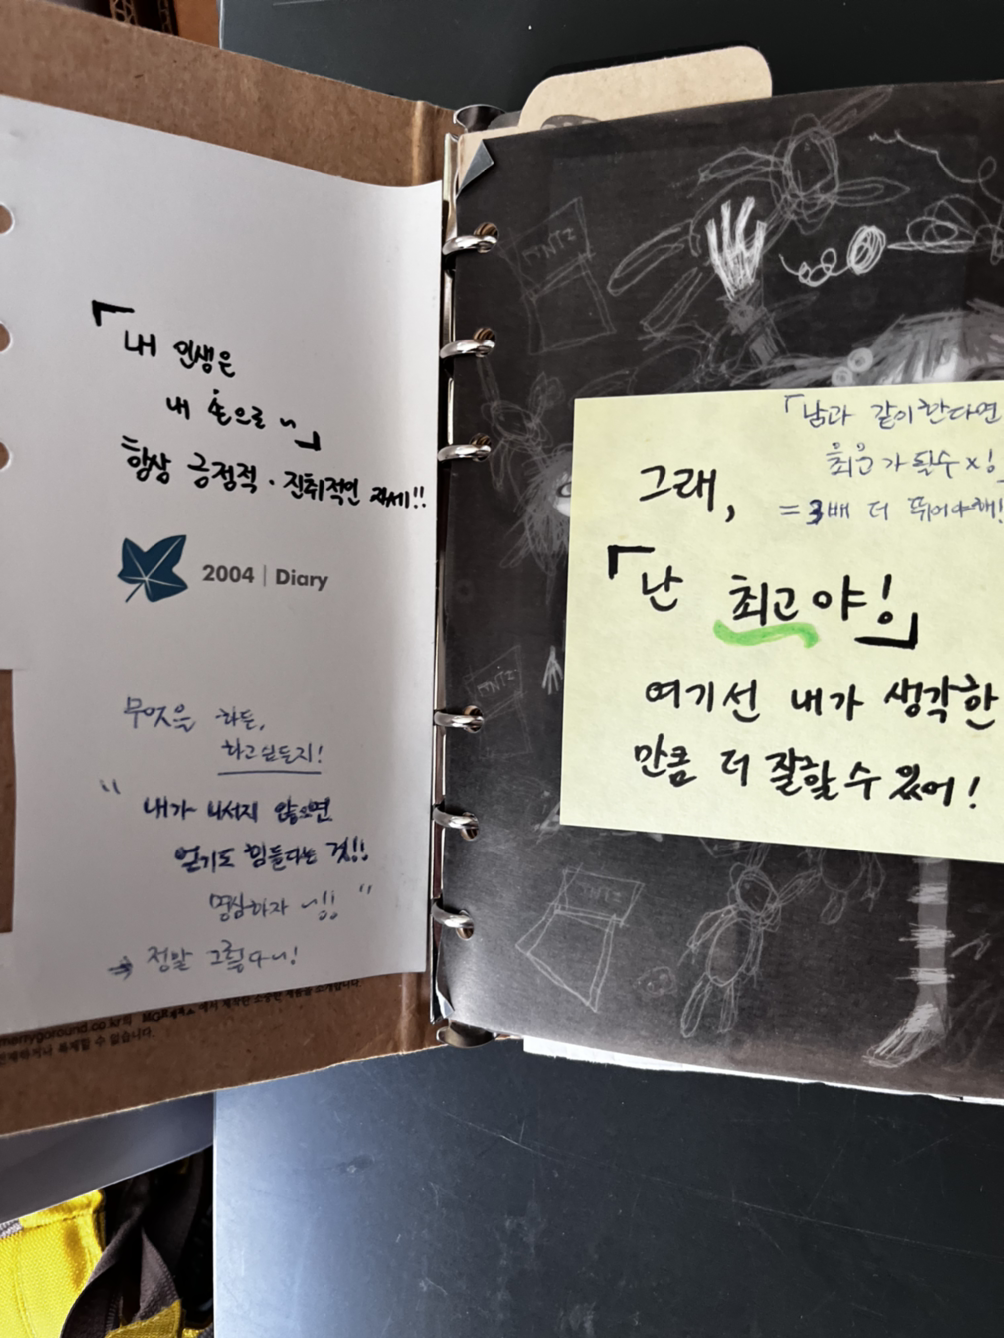 「내 인생은
내 손으로~」
항상 긍정적·진취적인 자세!!
2004 | Diary
무엇을 하든,
하고싶든지!
" 내가 나서지 않으면
얻기도 힘들다는 것!!
명심하자~!! "
→ 정말 그렇다~!
merrygoround.co.kr의
에서 제작한 소중한 제품을 소개합니다.
복제할 수 없습니다.
「남과 같이한다면
최고가 될수 x!
= 3배 더 뛰어야해!
그래,
「난 최고야!」
여기선 내가 생각한
만큼 더 잘할 수 있어!